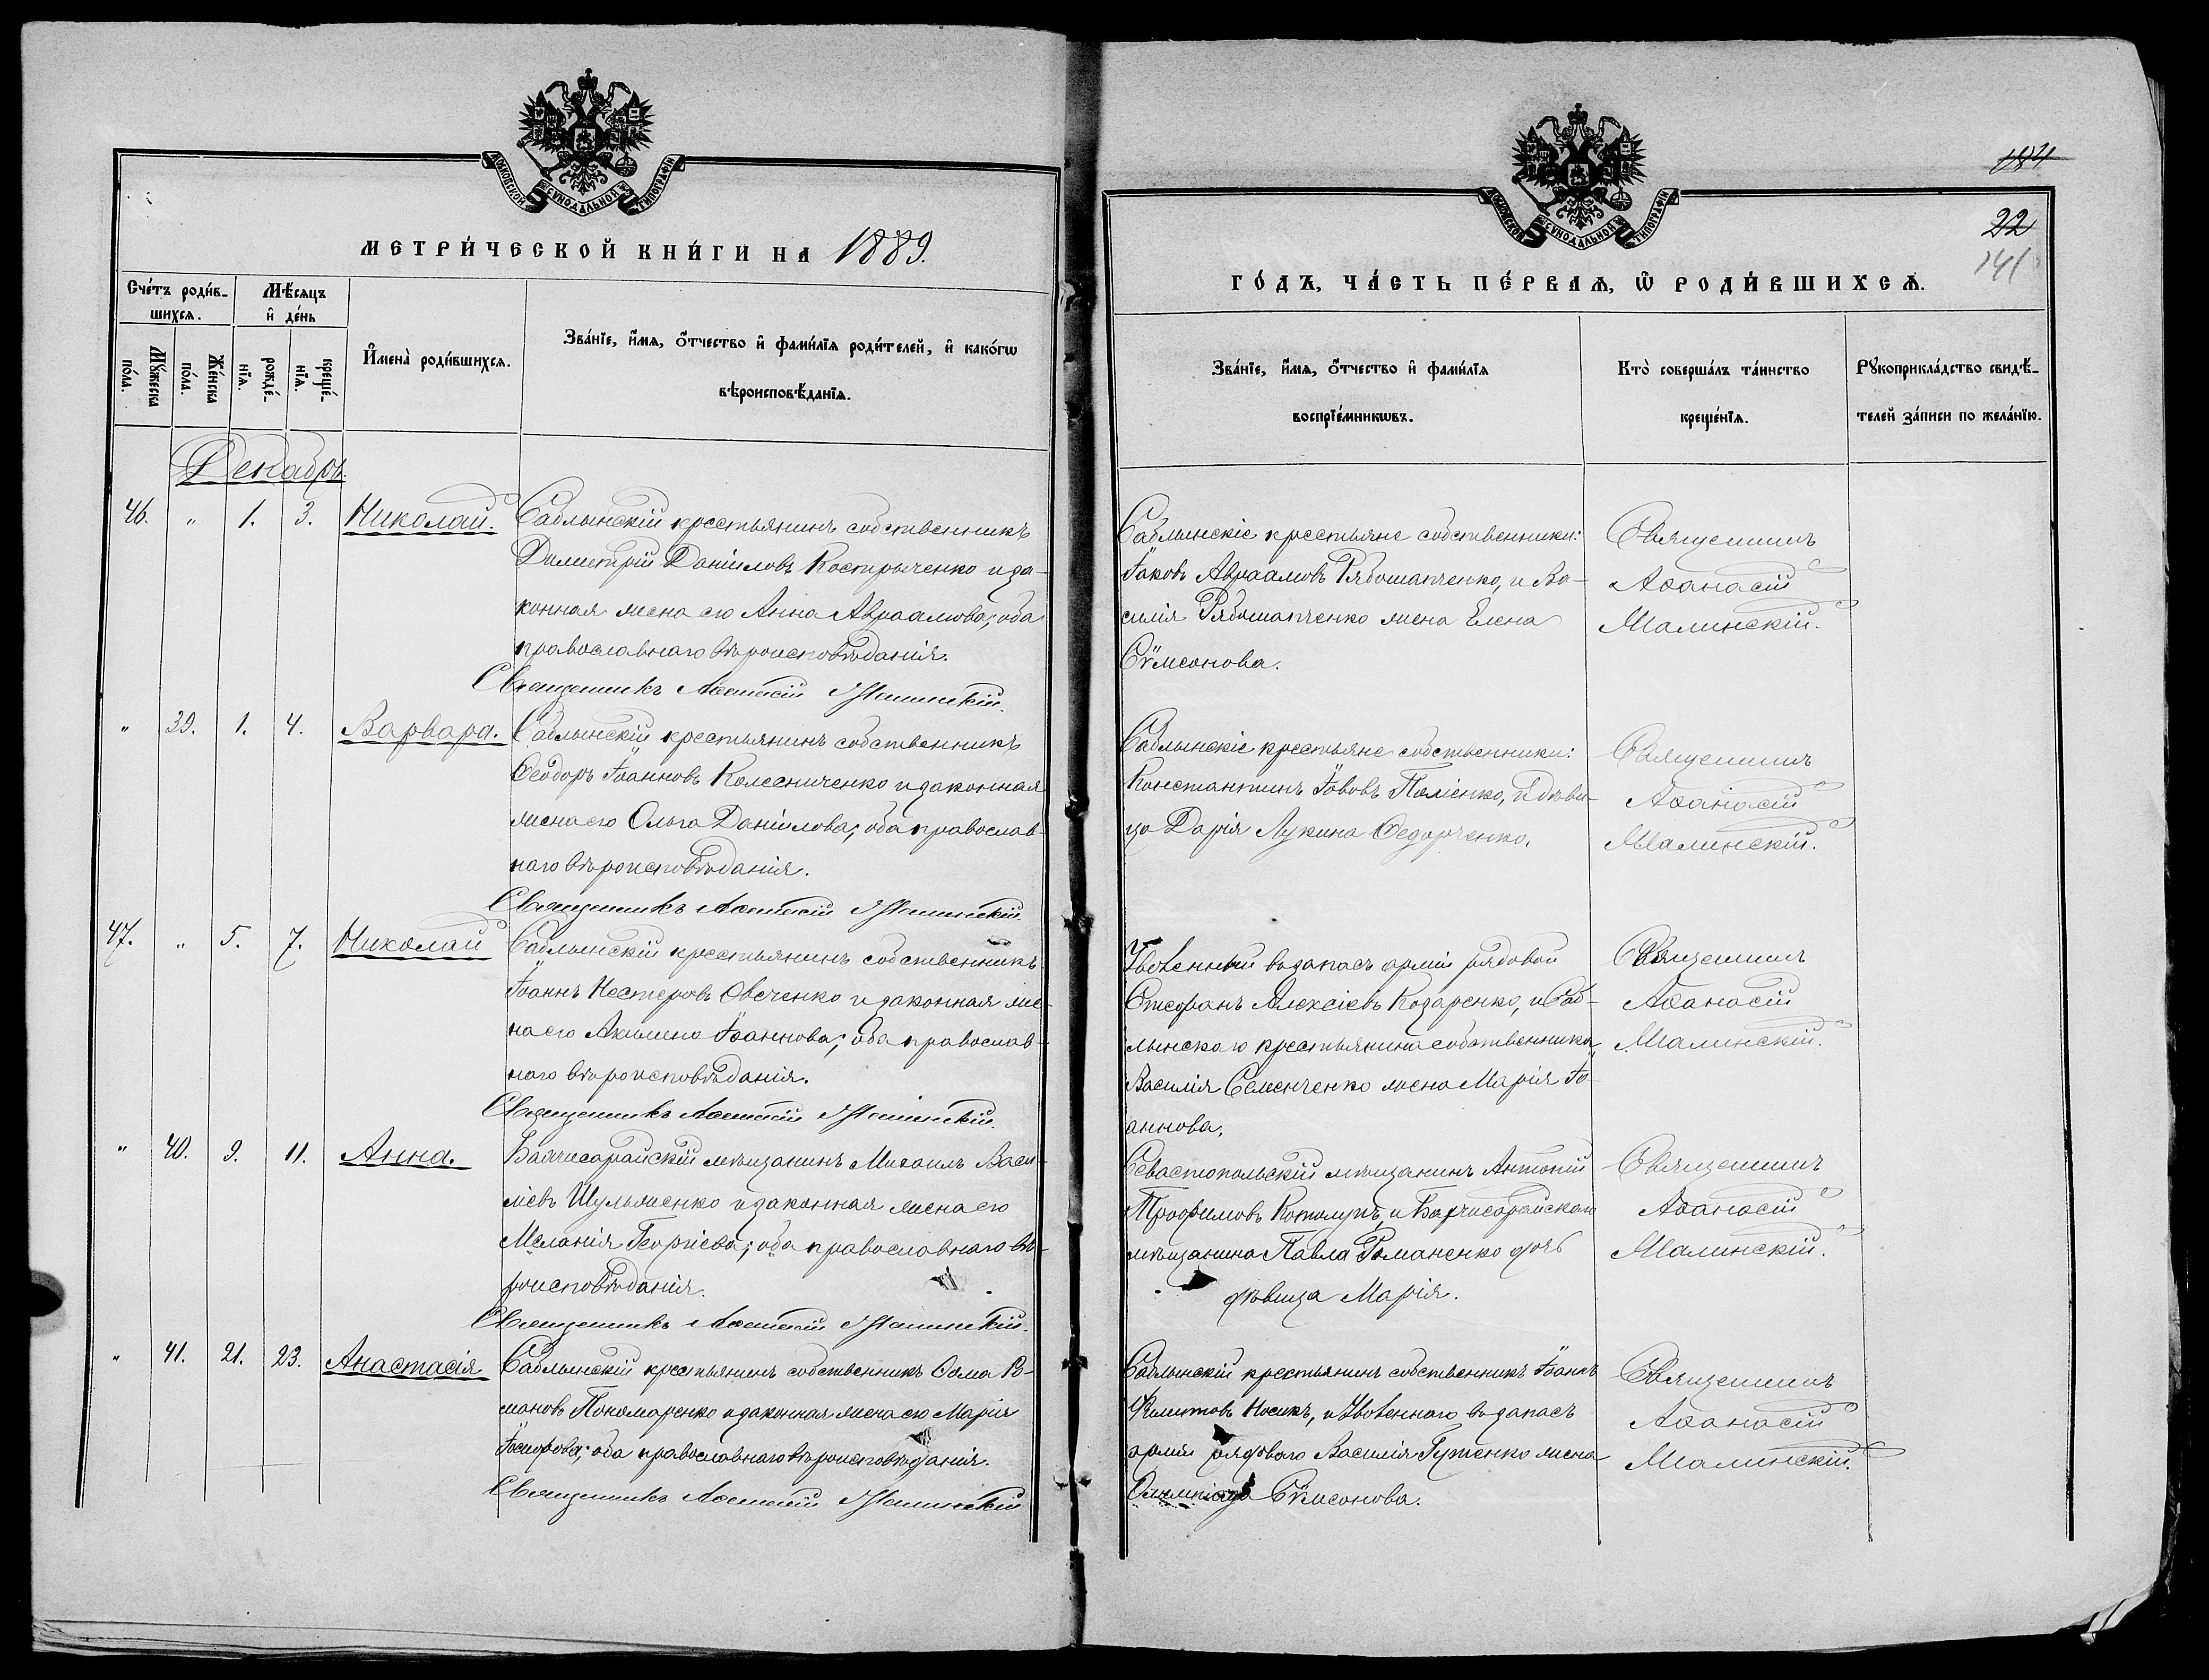 МОСКОВСКОЙ СѴНОДАЛЬНОЙ ТИПОГРАФІИ
МЕТРИ́ЧЕСКОЙ КНИ́ГИ НА 1889.
Сче́тъ роди́в-
шихсѧ.
Мѣ́сѧцъ
и҆ де́нь
И҆мена̀ роди́вшихсѧ.
Зва́нїе, и҆́мѧ, ѻ҆́тчество и҆ фами́лїѧ роди́телей, и҆ како́гѡ
вѣроисповѣ́данїѧ.
Мꙋ́жеска
по́ла.
Же́нска
по́ла.
рожде́-
нїѧ.
креще́-
нїѧ.
Декабрь.
46. " 1. 3. Николай. Саблынскій крестьянинъ собственникъ
Димитрій Даніиловъ Костыченко и за-
конная жена его Анна Авраамова; оба
православнаго вѣроисповѣданія.
Священникъ Аѳанасій Малинскій.
" 39. 1. 4. Варвара. Саблынскій крестьянинъ собственникъ
Ѳеодоръ Іоанновъ Колесниченко и законная
жена его Ольга Даніилова; оба православ-
наго вѣроисповѣданія.
Священникъ Аѳанасій Малинскій.
47. " 5. 7. Николай Саблынскій крестьянинъ собственникъ
Іоаннъ Нестеровъ Овсченко и законная же-
на его Акилина Іоаннова; оба православ-
наго вѣроисповѣданія.
Священникъ Аѳанасій Малинскій.
" 40. 9. 11. Анна. Бахчисарайскій мѣщанинъ Михаилъ Васи-
ліевъ Шульженко и законная жена его
Меланія Георгіева; оба православнаго вѣ-
роисповѣданія.
Священникъ Аѳанасій Малинскій.
" 41. 21. 23. Анастасія Саблынскій крестьянинъ собственникъ Ѳома Ро-
мановъ Пономаренко и законная жена его Марія
Іосифова; оба православнаго вѣроисповѣданія.
Священникъ Аѳанасій Малинскій
22
141
ГО́ДЪ, ЧА́СТЬ ПЕ́РВАѦ, Ѡ҆ РОДИ́ВШИХСѦ.
Зва́нїе, и҆́мѧ, ѻ҆́тчество и҆ фами́лїѧ
воспрїе́мникѡвъ.
Кто̀ соверша́лъ та́инство
креще́нїѧ.
Рꙋкоприкла́дство свидѣ́-
телей за́писи по жела́нїю.
Саблынскіе крестьяне собственники:
Іаковъ Авраамовъ Рябошапченко, и Ва-
силія Рябошапченко жена Елена
Сѵмеонова.
Священникъ
Аѳанасій
Малинскій.
Саблынскіе крестьяне собственники:
Константинъ Іововъ Поліенко, и дѣви-
ца Дарія Лукина Ѳедорченко.
Священникъ
Аѳанасій
Малинскій.
Уволенный въ запасъ арміи рядовой
Стефанъ Алексіевъ Козаренко, и Саб-
лынскаго крестьянина собственника
Василія Семенченко жена Марія Іо-
аннова.
Священникъ
Аѳанасій
Малинскій.
Севастопольскій мѣщанинъ Антоній
Трофимовъ Котолупъ, и Бахчисарайскаго
мѣщанина Павла Романенко дочь
дѣвица Марія.
Священникъ
Аѳанасій
Малинскій.
Саблынскій крестьянинъ собственникъ Іоаннъ
Филиповъ Носикъ, и Уволеннаго въ запасъ
арміи рядоваго Василія Гутенко жена
Олимпіада Сѵмеонова.
Священникъ
Аѳанасій
Малинскій.